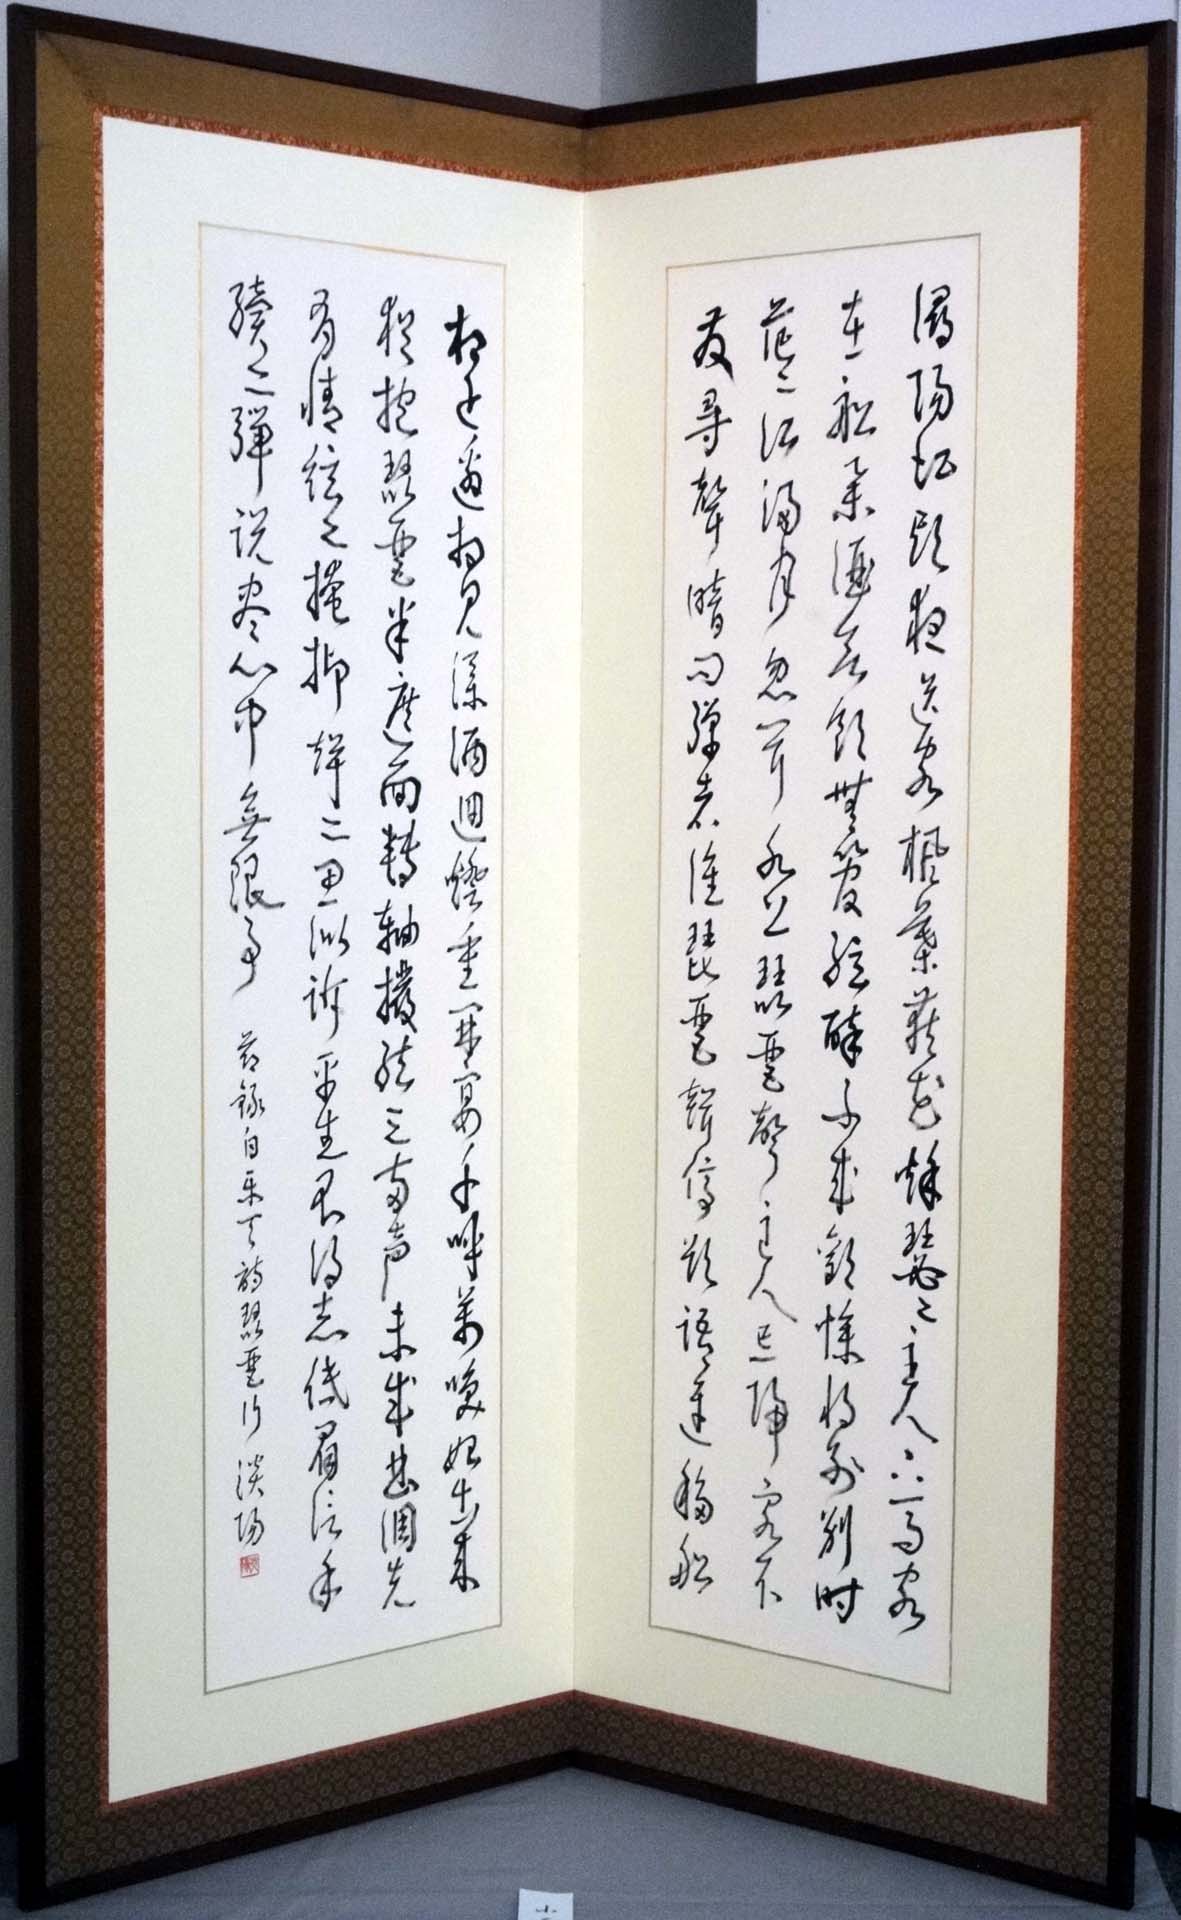 潯陽江頭夜送客楓葉荻花秋瑟々主人下馬客
在船舉酒欲飲無管絃醉不成歡慘將別別時
茫々江浸月忽聞水上琵琶聲主人忘歸客不
發尋聲暗問彈者誰琵琶聲停欲語遲移船
相近邀相見添酒迴燈重開宴千呼萬喚始出来
猶抱琵琶半遮面轉軸撥絃三両声未成曲調先
有情絃々掩抑聲々思似訴平生不得志低眉信手
續々彈説尽心中無限事 節録白楽天詩琵琶行 淡陽